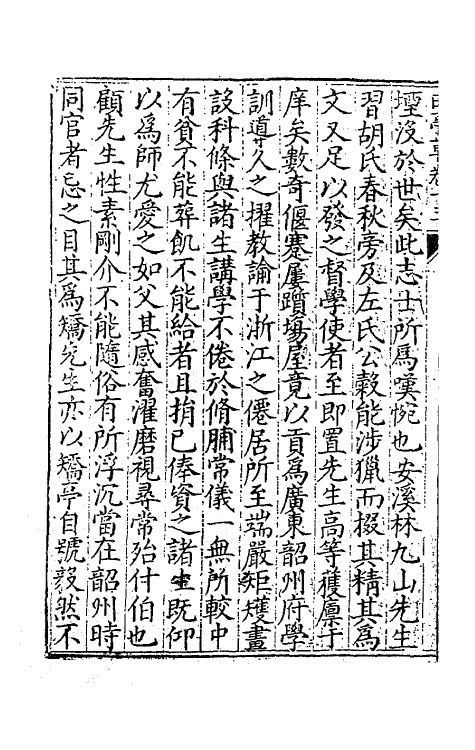 堙沒於世矣此志士所爲嘆惋也安溪林九山先生
習胡氏春秋旁及左氏公穀能涉獵而掇其精其爲
文又足以發之督學使者至即置先生高等獲廪于
庠矣數奇偃蹇屢躓塲屋竟以貢爲廣東韶州府學
訓導久之擢教諭于浙江之僊居所至端嚴矩矱畫
設科條與諸生講學不倦於脩脯常儀一無所較中
有貧不能葬飢不能給者且捐已俸資之諸生既仰
以爲師尤愛之如父其感奮濯磨視尋常殆什伯也
顧先生性素剛介不能隨俗有所浮沉當在韶州時
同官者忌之目其爲矯先生亦以矯亭自號毅然不